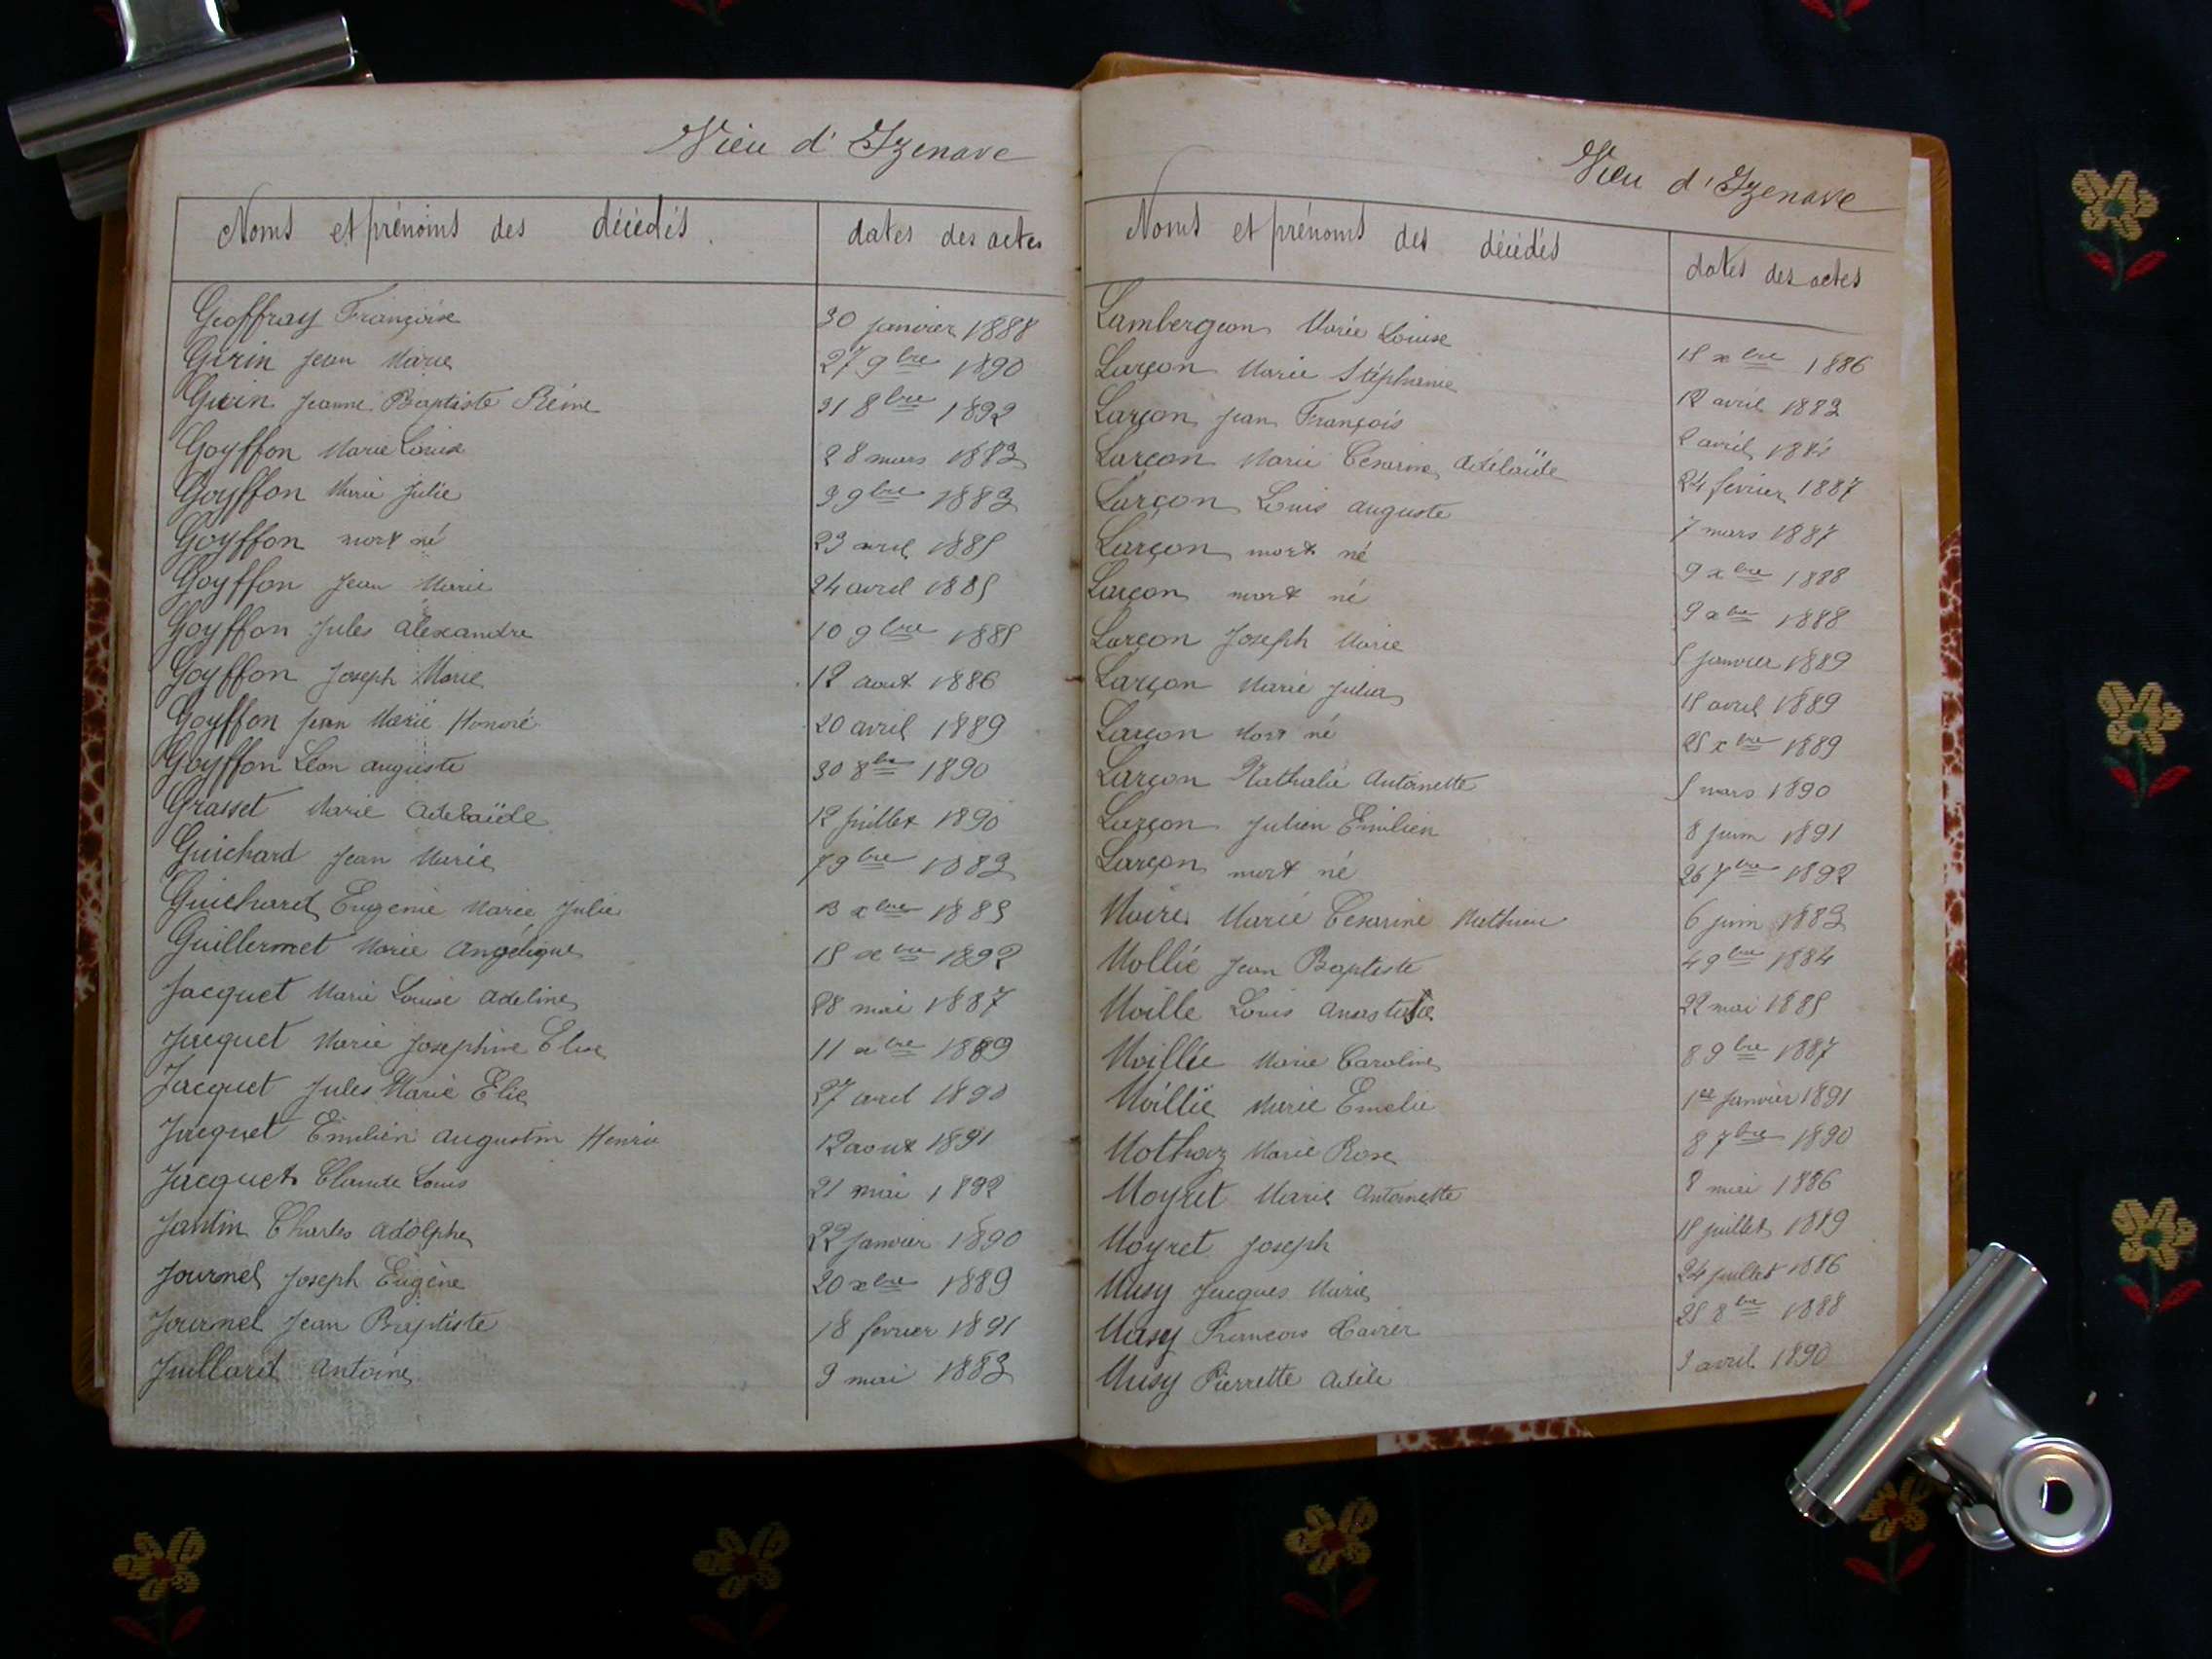 Vieu d'Izenave
Noms et prénoms des décédés. dates des actes
Geoffray Françoise 30 janvier 1888
Girin Jean Marie 27 9bre 1890
Jeanne Baptiste 31 8bre 1892
Goyffon Marie Louise 28 mars 1883
Goyffon Marie Julie 3 9bre 1883
Goyffon mort né 23 avril 1885
Goyffon Jean Marie 24 avril 1885
Goyffon Jules Alexandre 10 9bre 1885
Goyffon Joseph Marie 12 aout 1886
Goyffon Jean Marie Honoré 20 avril 1889
Goyffon Léon auguste 30 8bre 1890
Grasset Marie Adelaïde 12 juillet 1890
Guichard Jean Marie 7 9bre 1883
Guichard Eugénie Marie Julie 13 xbre 1885
Guillermet Marie Angélique 15 xbre 1892
Jacquet Marie Louise Adeline 28 mai 1887
Jacquet Marie Josephine Elise 11 xbre 1889
Jacquet Jules Marie Elie 27 avril 1890
Jacquet Emilien Augustin Henri 12 aout 1891
Jacquet Claude Louis 21 mai 1892
Jantin Charles Adolphe 22 janvier 1890
Journel Joseph Eugène 20 xbre 1889
Journel Jean Baptiste 18 fevrier 1891
Juillard Antoine 3 mai 1883
Vieu d'Izenave
Noms et prénoms des décédés dates des actes
Lambergeon Marie Louise 15 xbre 1886
Larçon Marie Stéphanie 12 avril 1883
Larçon Jean François 2 avril
Larçon Marie Césarine Adélaïde 24 fevrier 1887
Larçon Louis auguste 7 mars 1887
Larçon mort né 9 xbre 1888
Larçon mort né 9 xbre 1888
Larçon Joseph Marie 5 janvier 1889
Larçon Marie Julia 15 avril 1889
Larçon Mort né 25 xbre 1889
Larçon Nathalie Antoinette 5 mars 1890
Larçon Julien Emilien 8 juin 1891
Larçon mort né 26 7bre 1892
Marie Césarine 6 juin 1883
Jean Baptiste 4 9bre 1884
Louis Anastase 22 mai 1885
Moillie Marie Caroline 8 9bre 1887
Moillie Marie Emelie 1er janvier 1891
Mothaz Marie Rose 8 7bre 1890
Moyret Marie Antoinette 8 mai 1886
Moyret Joseph 15 juillet 1889
Musy Jacques Marie 24 juillet 1886
Musy François Xavier 25 8bre 1888
Musy Pierrette Adèle 3 avril 1890